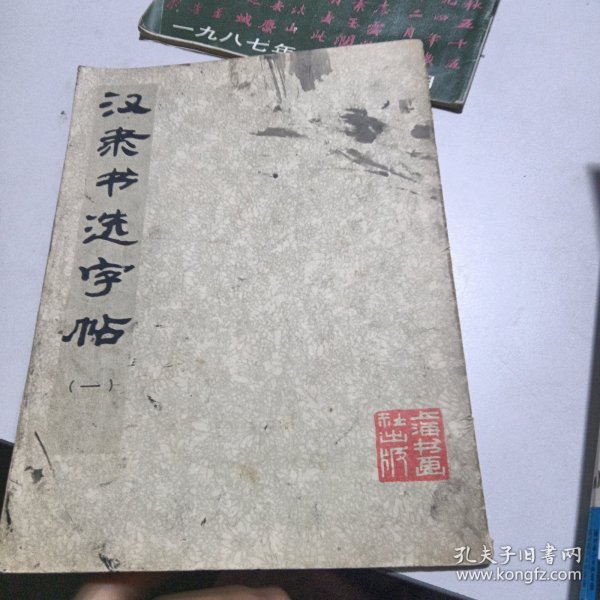 汉隶书选字帖
（一）
上海书画
社出版
一九八七年
孔夫子旧书网
www.kongfz.com